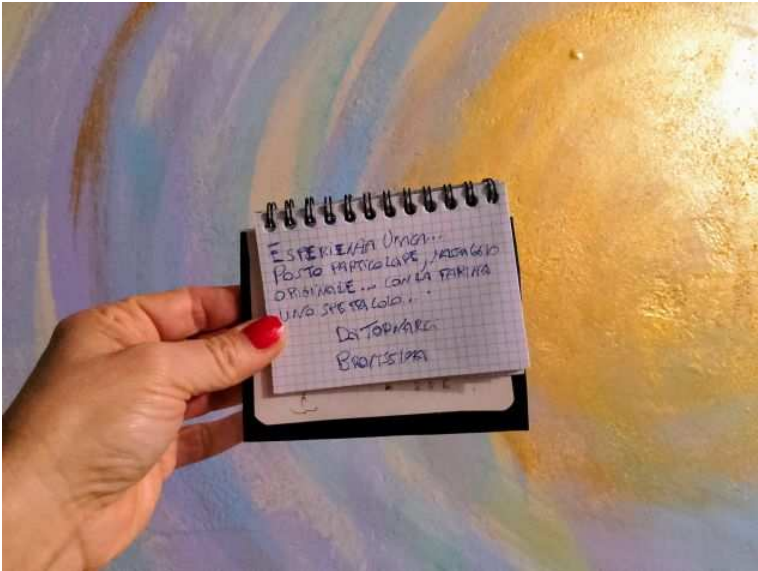 ESPERIENZA UNICA...
POSTO PARTICOLARE, MASSAGGIO
ORIGINALE... CON LA FARINA
UNO SPETTACOLO...
DA TORNARCI
BRAVISSIMA